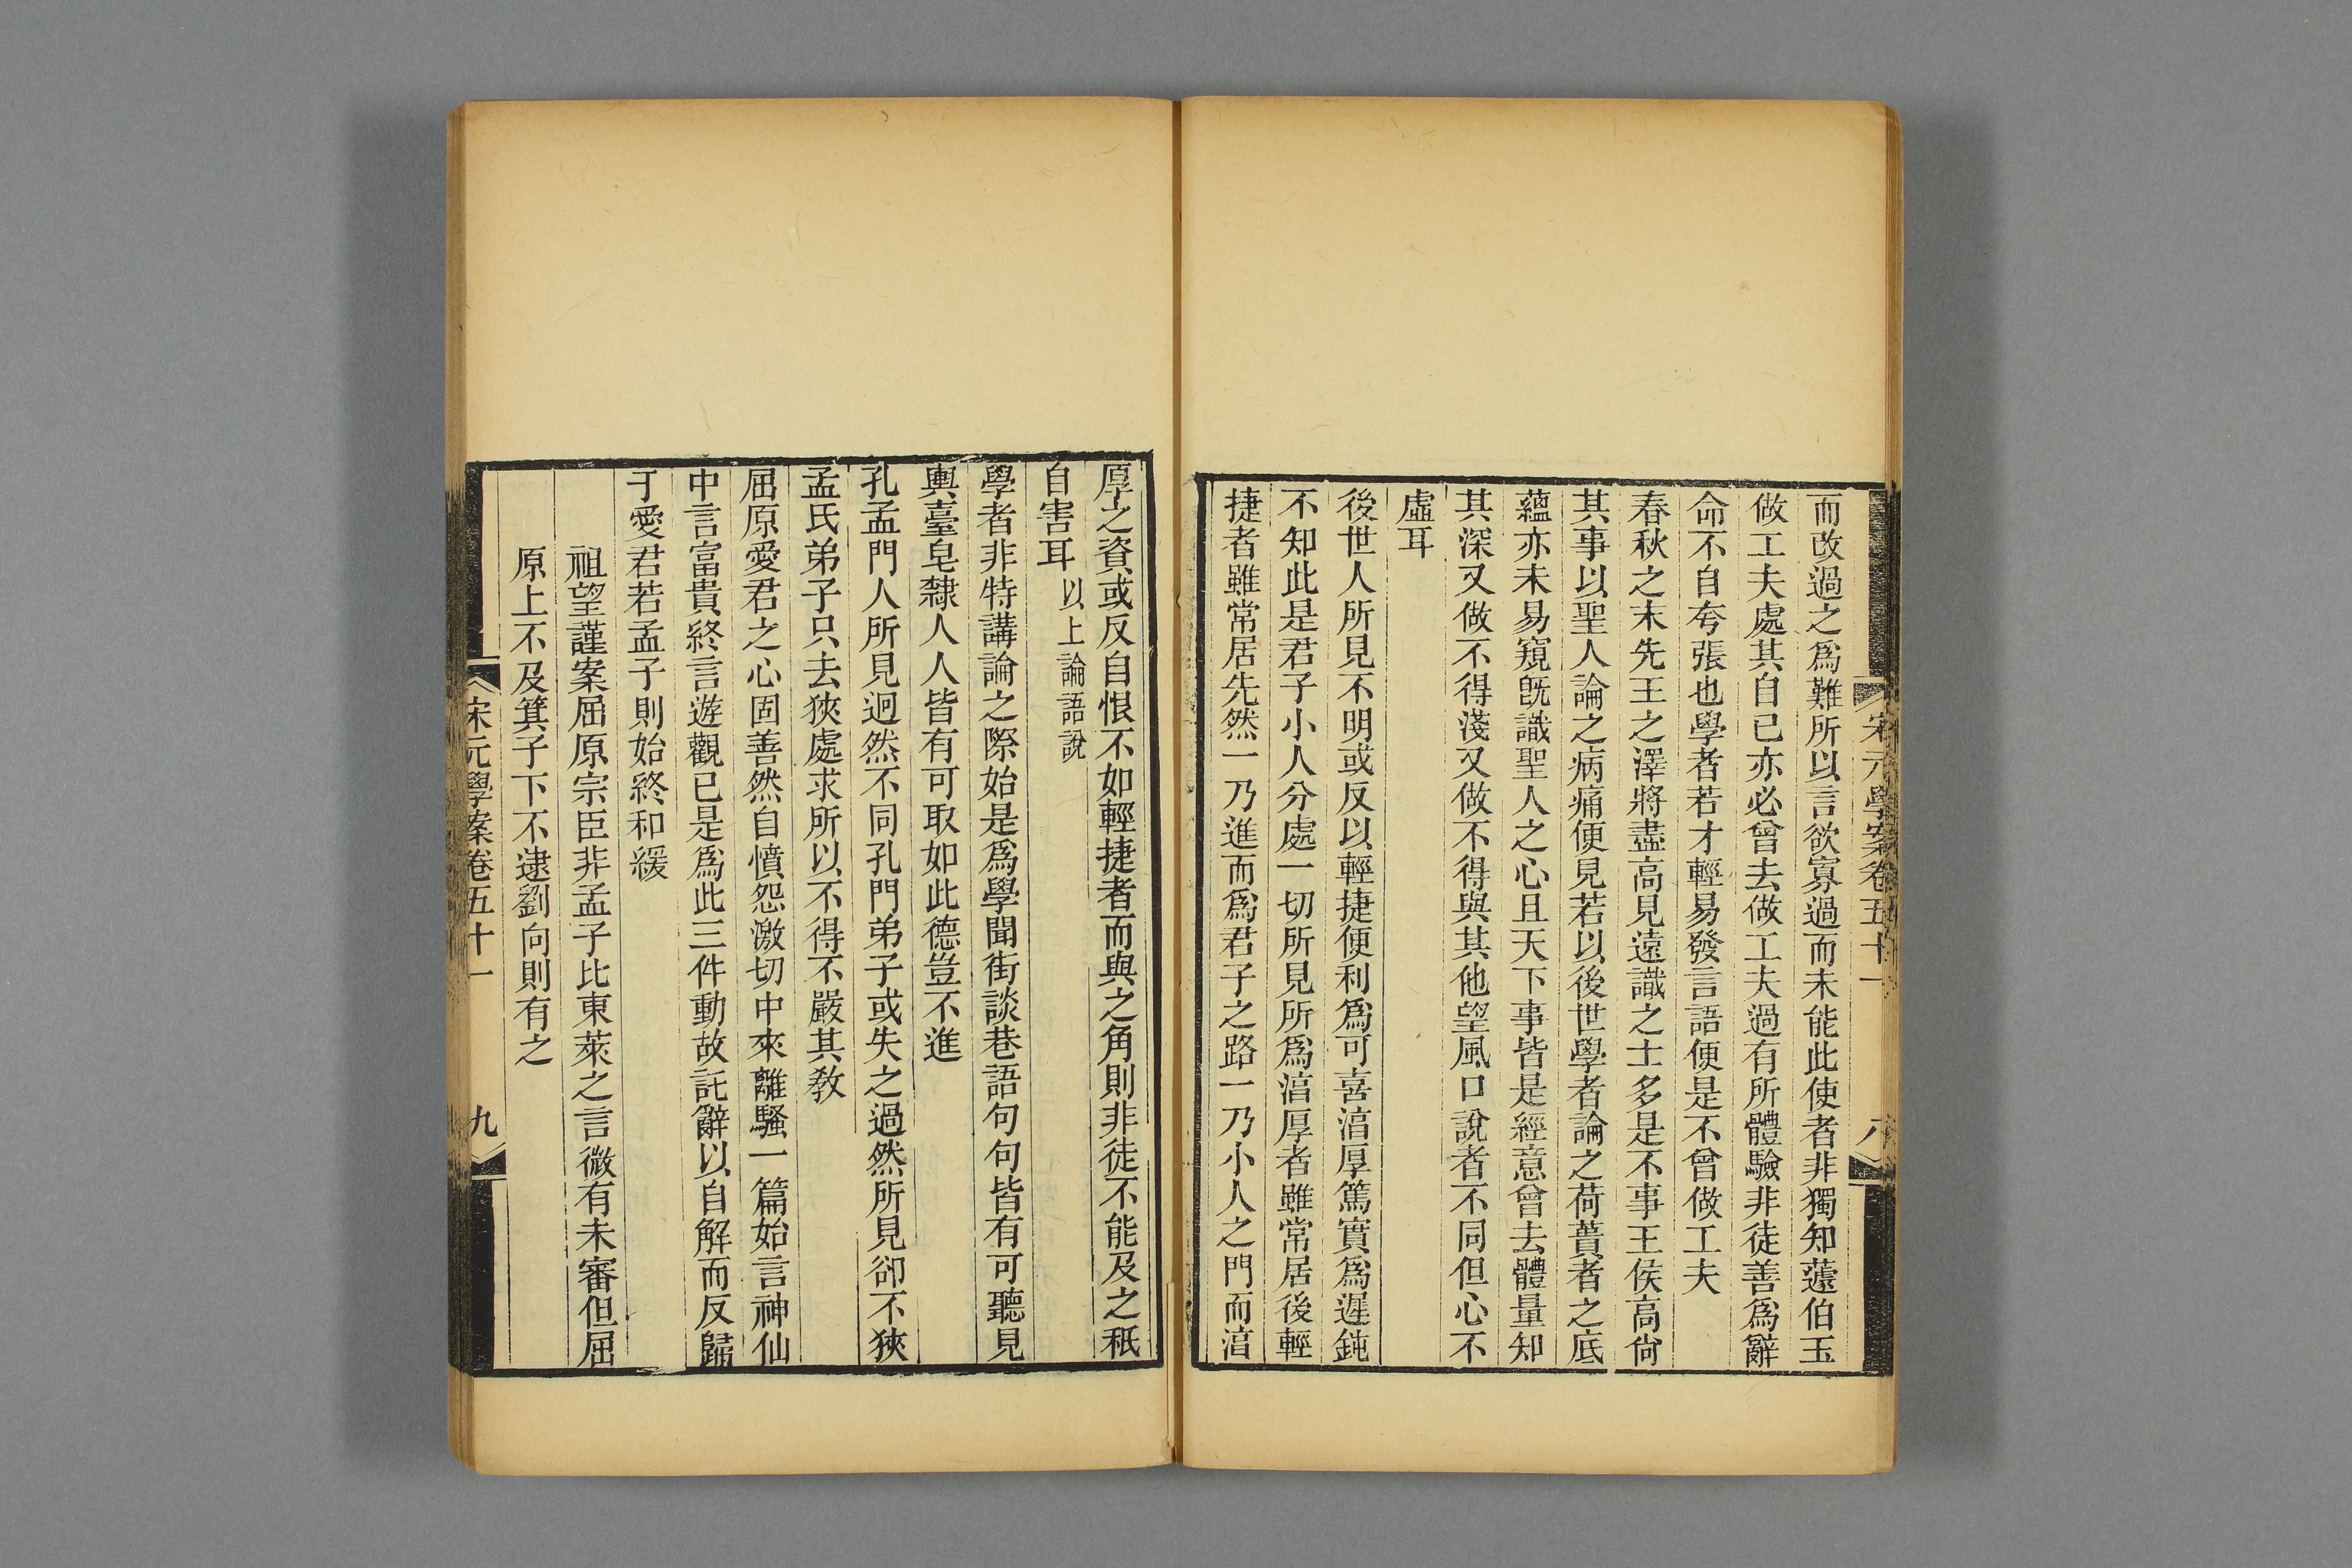 宋元學案卷五十一
八
而改過之爲難所以言欲寡過而未能此使者非獨知蘧伯玉
做工夫處其自已亦必曾去做工夫過有所體驗非徒善爲辭
命不自夸張也學者若才輕易發言語便是不曾做工夫
春秋之末先王之澤將盡高見遠識之士多是不事王侯高尙
其事以聖人論之病痛便見若以後世學者論之荷蕢者之底
蘊亦未易窺旣識聖人之心且天下事皆是經意曾去體量知
其深又做不得淺又做不得與其他望風口說者不同但心不
虛耳
後世人所見不明或反以輕捷便利爲可喜渻厚篤實爲遲鈍
不知此是君子小人分處一切所見所爲渻厚者雖常居後輕
捷者雖常居先然一乃進而爲君子之路一乃小人之門而渻
厚之資或反自恨不如輕捷者而與之角則非徒不能及之秖
自害耳以上論語說
學者非特講論之際始是爲學聞街談巷語句句皆有可聽見
輿臺皂隸人人皆有可取如此德豈不進
孔孟門人所見迥然不同孔門弟子或失之過然所見卻不狹
孟氏弟子只去狹處求所以不得不嚴其敎
屈原愛君之心固善然自憤怨激切中來離騷一篇始言神仙
中言富貴終言遊觀已是爲此三件動故託辭以自解而反歸
于愛君若孟子則始終和緩
祖望謹案屈原宗臣非孟子比東萊之言微有未審但屈
原上不及箕子下不逮劉向則有之
宋元學案卷五十一
九